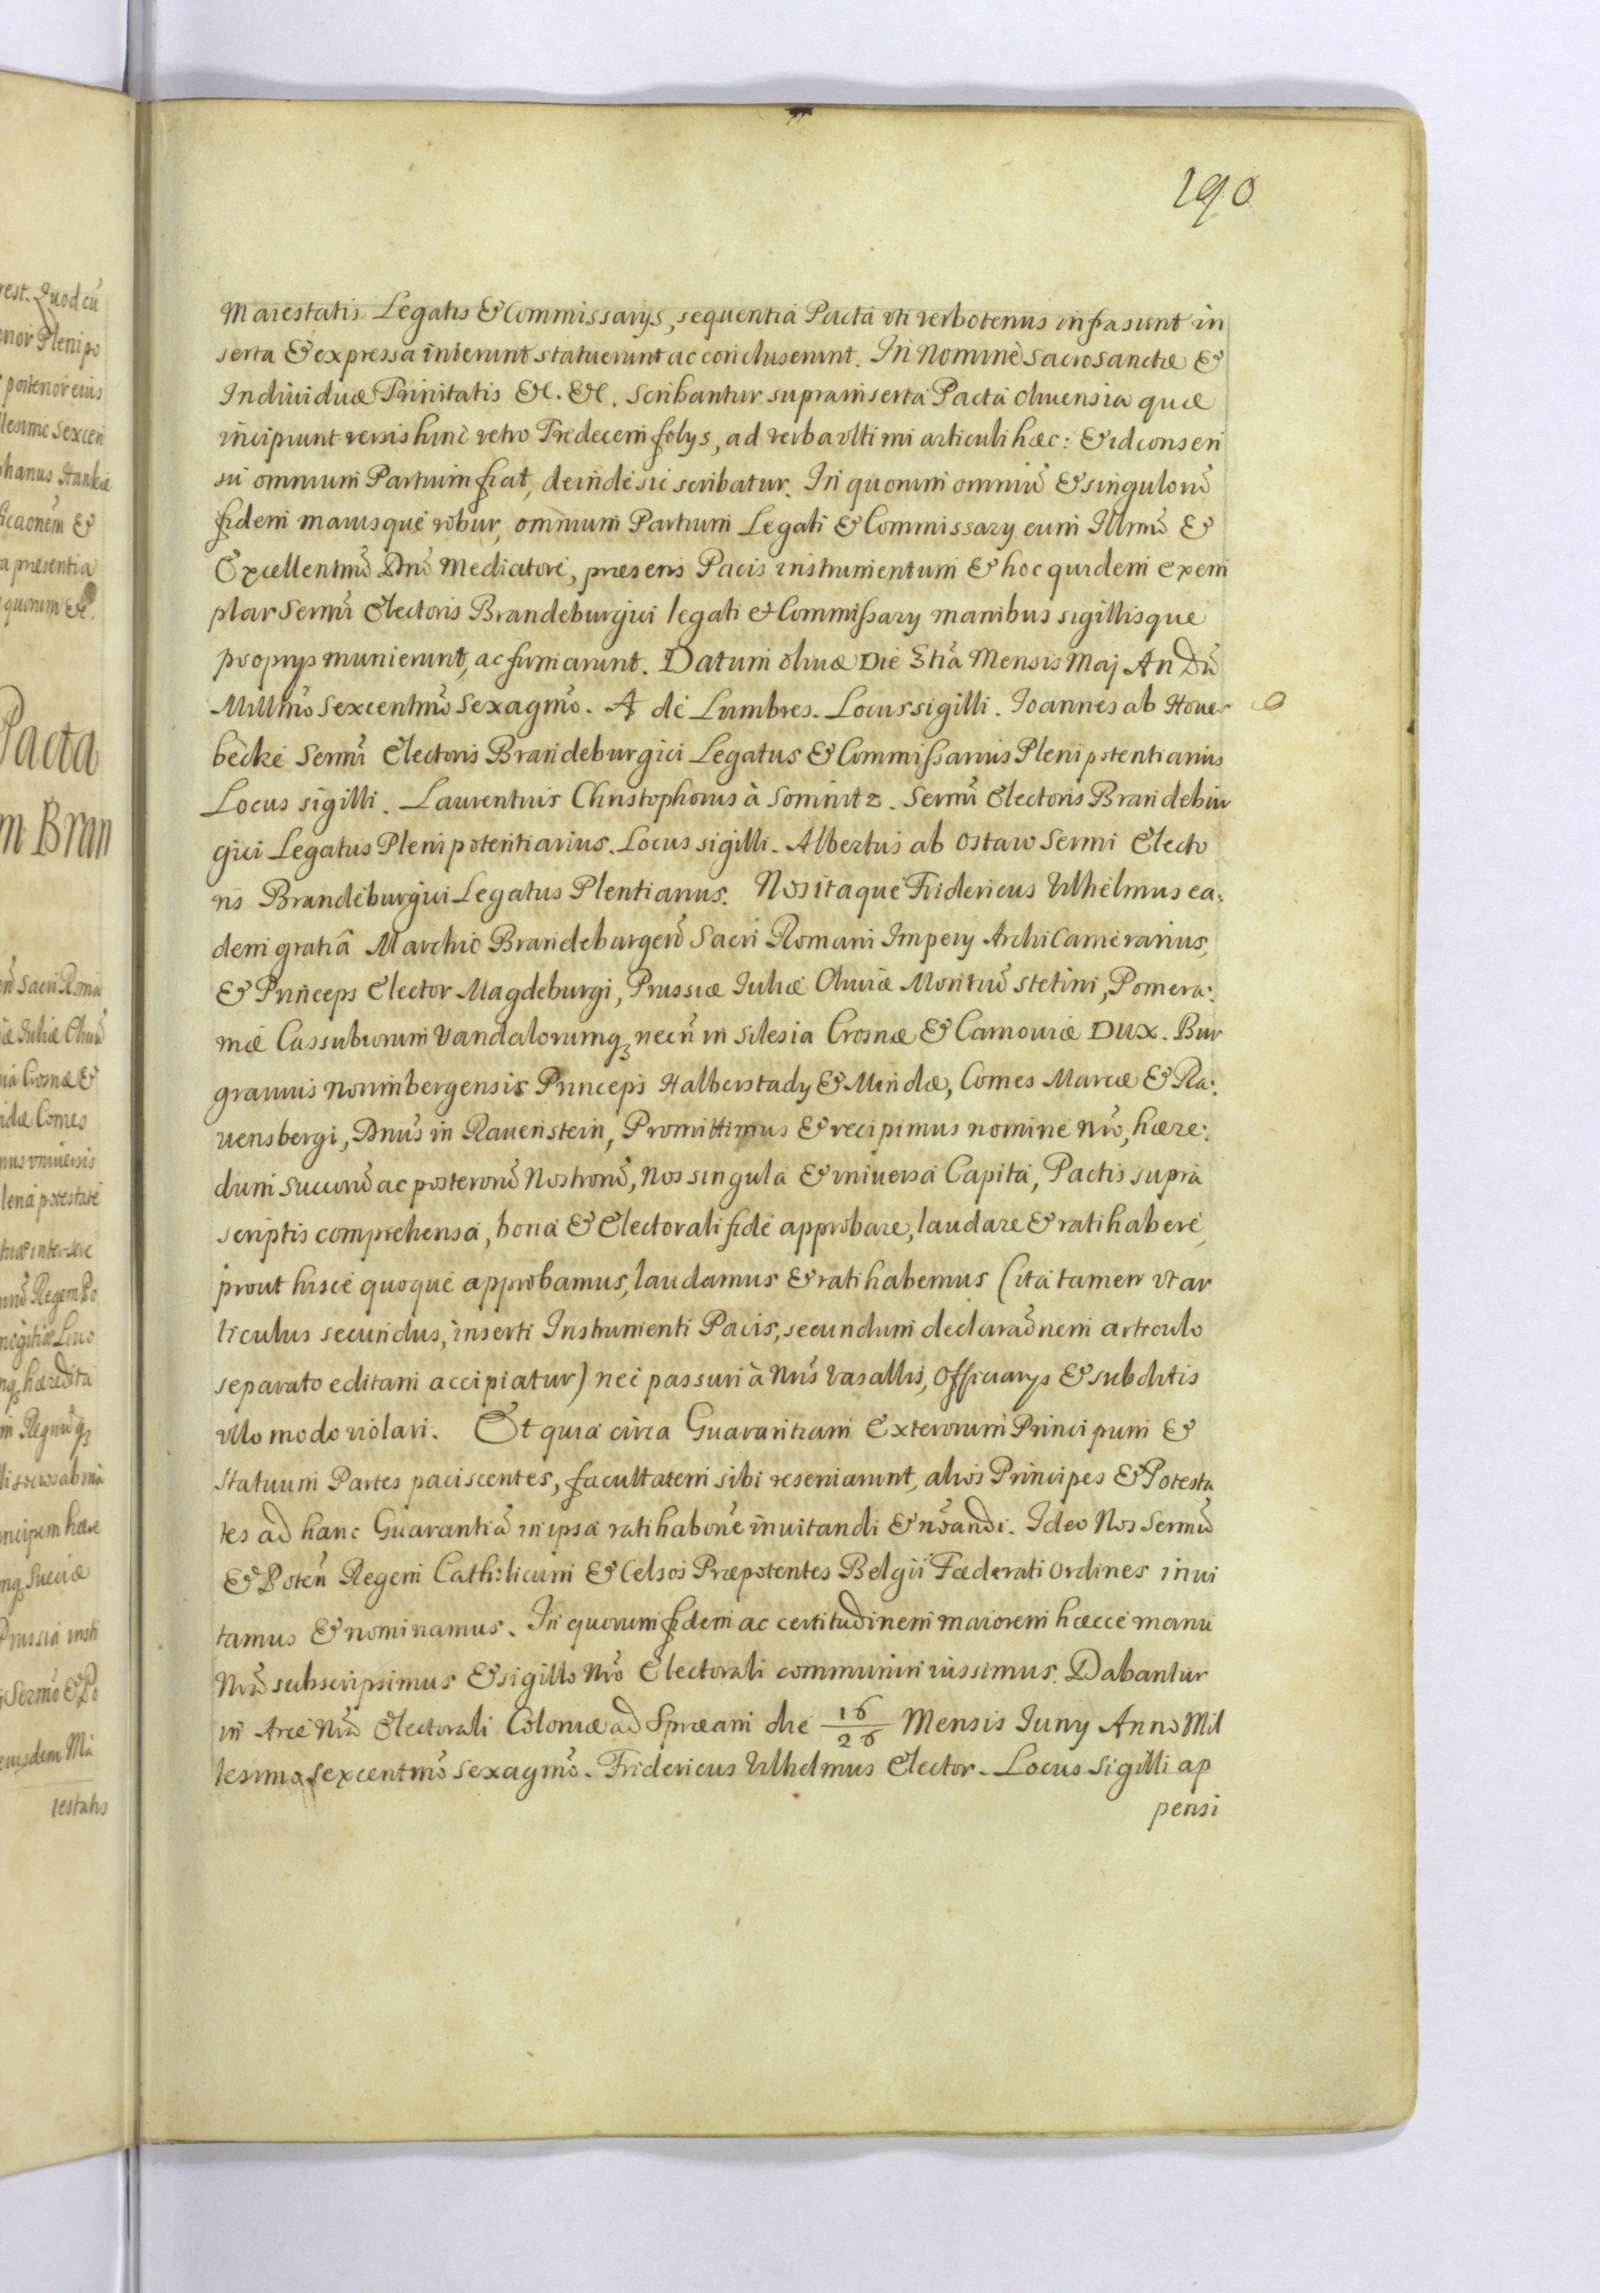 190
rest. Quod cũ
enor Plenipo
posterior eius
lesimo Sexcen
phanus Hankie
ficaonẽm &
a presentia
quorum &c.
Pacta
m Bran
Sacri Roma
iæ Iuliæ Cliuiæ
ia Crosnæ &
idæ Comes
mus vniuersis
lena potestate
inter-sere
Regem Po
mogitiæ Liuo
nq hæredita
m Regnũq
ncipem hære
mq Sueciæ
Prussia insti
Sermõ & Po
eiusdem Ma
iestatis
Maiestatis Legatis & Commissarijs, sequentia Pacta vti verbotenus infra sunt in
serta & expressa inierunt statuerunt ac concluserunt. In Nomine Sacrosanctæ &
Indiuiduæ Trinitatis &c. &c. Scribantur supra inserta Pacta Oliuensia quæ
incipiunt versis hinc retro Tredecem folys, ad verba vltimi articuli hæc: & id consen
su omnium Partium fiat, deinde sic scribatur. In quorum omniũ & singulorũ
fidem maiusque robur, omnium Partium Legati & Commissary cum Illmõ &
Excellentmõ Dnõ Mediatore, præsens Pacis instrumentum & hoc quidem exem
plar Sermĩ Electoris Brandeburgici legati & Commissary manibus sigillisque
proprys munierunt, ac firmarunt. Datum Oliuæ Die 3tia Mensis Maj An Dñi
Millmõ Sexcentmõ Sexagmõ. A de Lumbres. Locus sigilli. Ioannes ab Houer
becke Sermĩ Electoris Brandeburgici Legatus & Commissarius Plenipotentiarius
Locus sigilli. Laurentius Christophorus à Somnitz. Sermĩ Electoris Brandebur
gici Legatus Plenipotentiarius. Locus sigilli. Albertus ab Ostaw Sermi Electo
ris Brandeburgici Legatus Plentiarius. Nos itaque Fridericus Wilhelmus ea:
dem gratiâ Marchio Brandeburgen̄ Sacri Romani Impery Archi Camerarius,
& Princeps Elector Magdeburgi, Prussiæ Iuliæ Cliuiæ Montiũ Stetini, Pomera:
niæ Cassuborum Vandalorumq necñ in Silesia Crosnæ & Carnouiæ DUX. Bur
grauius Norimbergensis Princeps Halberstady & Mindæ, Comes Marcæ & Ra:
uensbergi, Dnũs in Rauenstein, Promittimus & recipimus nomine nrõ, hære:
dum Succorũ ac posterorũ Nostrorũ, Nos singula & vniuersa Capita, Pactis supra
scriptis comprehensa, bona & Electorali fide approbare, laudare & ratihabere,
prout hisce quoque approbamus, laudamus & ratihabemus (ita tamen vt ar
ticulus secundus, inserti Instrumenti Pacis, secundum declaraõnem articulo
separato editam accipiatur) nec passuri à Nrĩs Vasallis, Officiarys & subditis
vllo modo violari. Et quia circa Guarantiam Exterorum Principum &
Statuum Partes paciscentes, facultatem sibi reseruarunt, alios Principes & Potesta
tes ad hanc Guarantiã in ipsa ratihabonẽ inuitandi & nõandi. Ideo Nos Sermũ
& Poteñ Regem Catholicum & Celsos Præpotentes Belgii Fæderati Ordines inui
tamus & nominamus. In quorum fidem ac certitudinem maiorem hæcce manu
Nrã subscripsimus & sigillo Nrõ Electorali communiri iussimus. Dabantur
in Arce Nrã Electorali Coloniæ ad Spræam die 16/26 Mensis Iuny Anno Mil
lesimo sexcentmõ Sexagmõ. Fridericus Wilhelmus Elector. Locus Sigilli ap
pensi